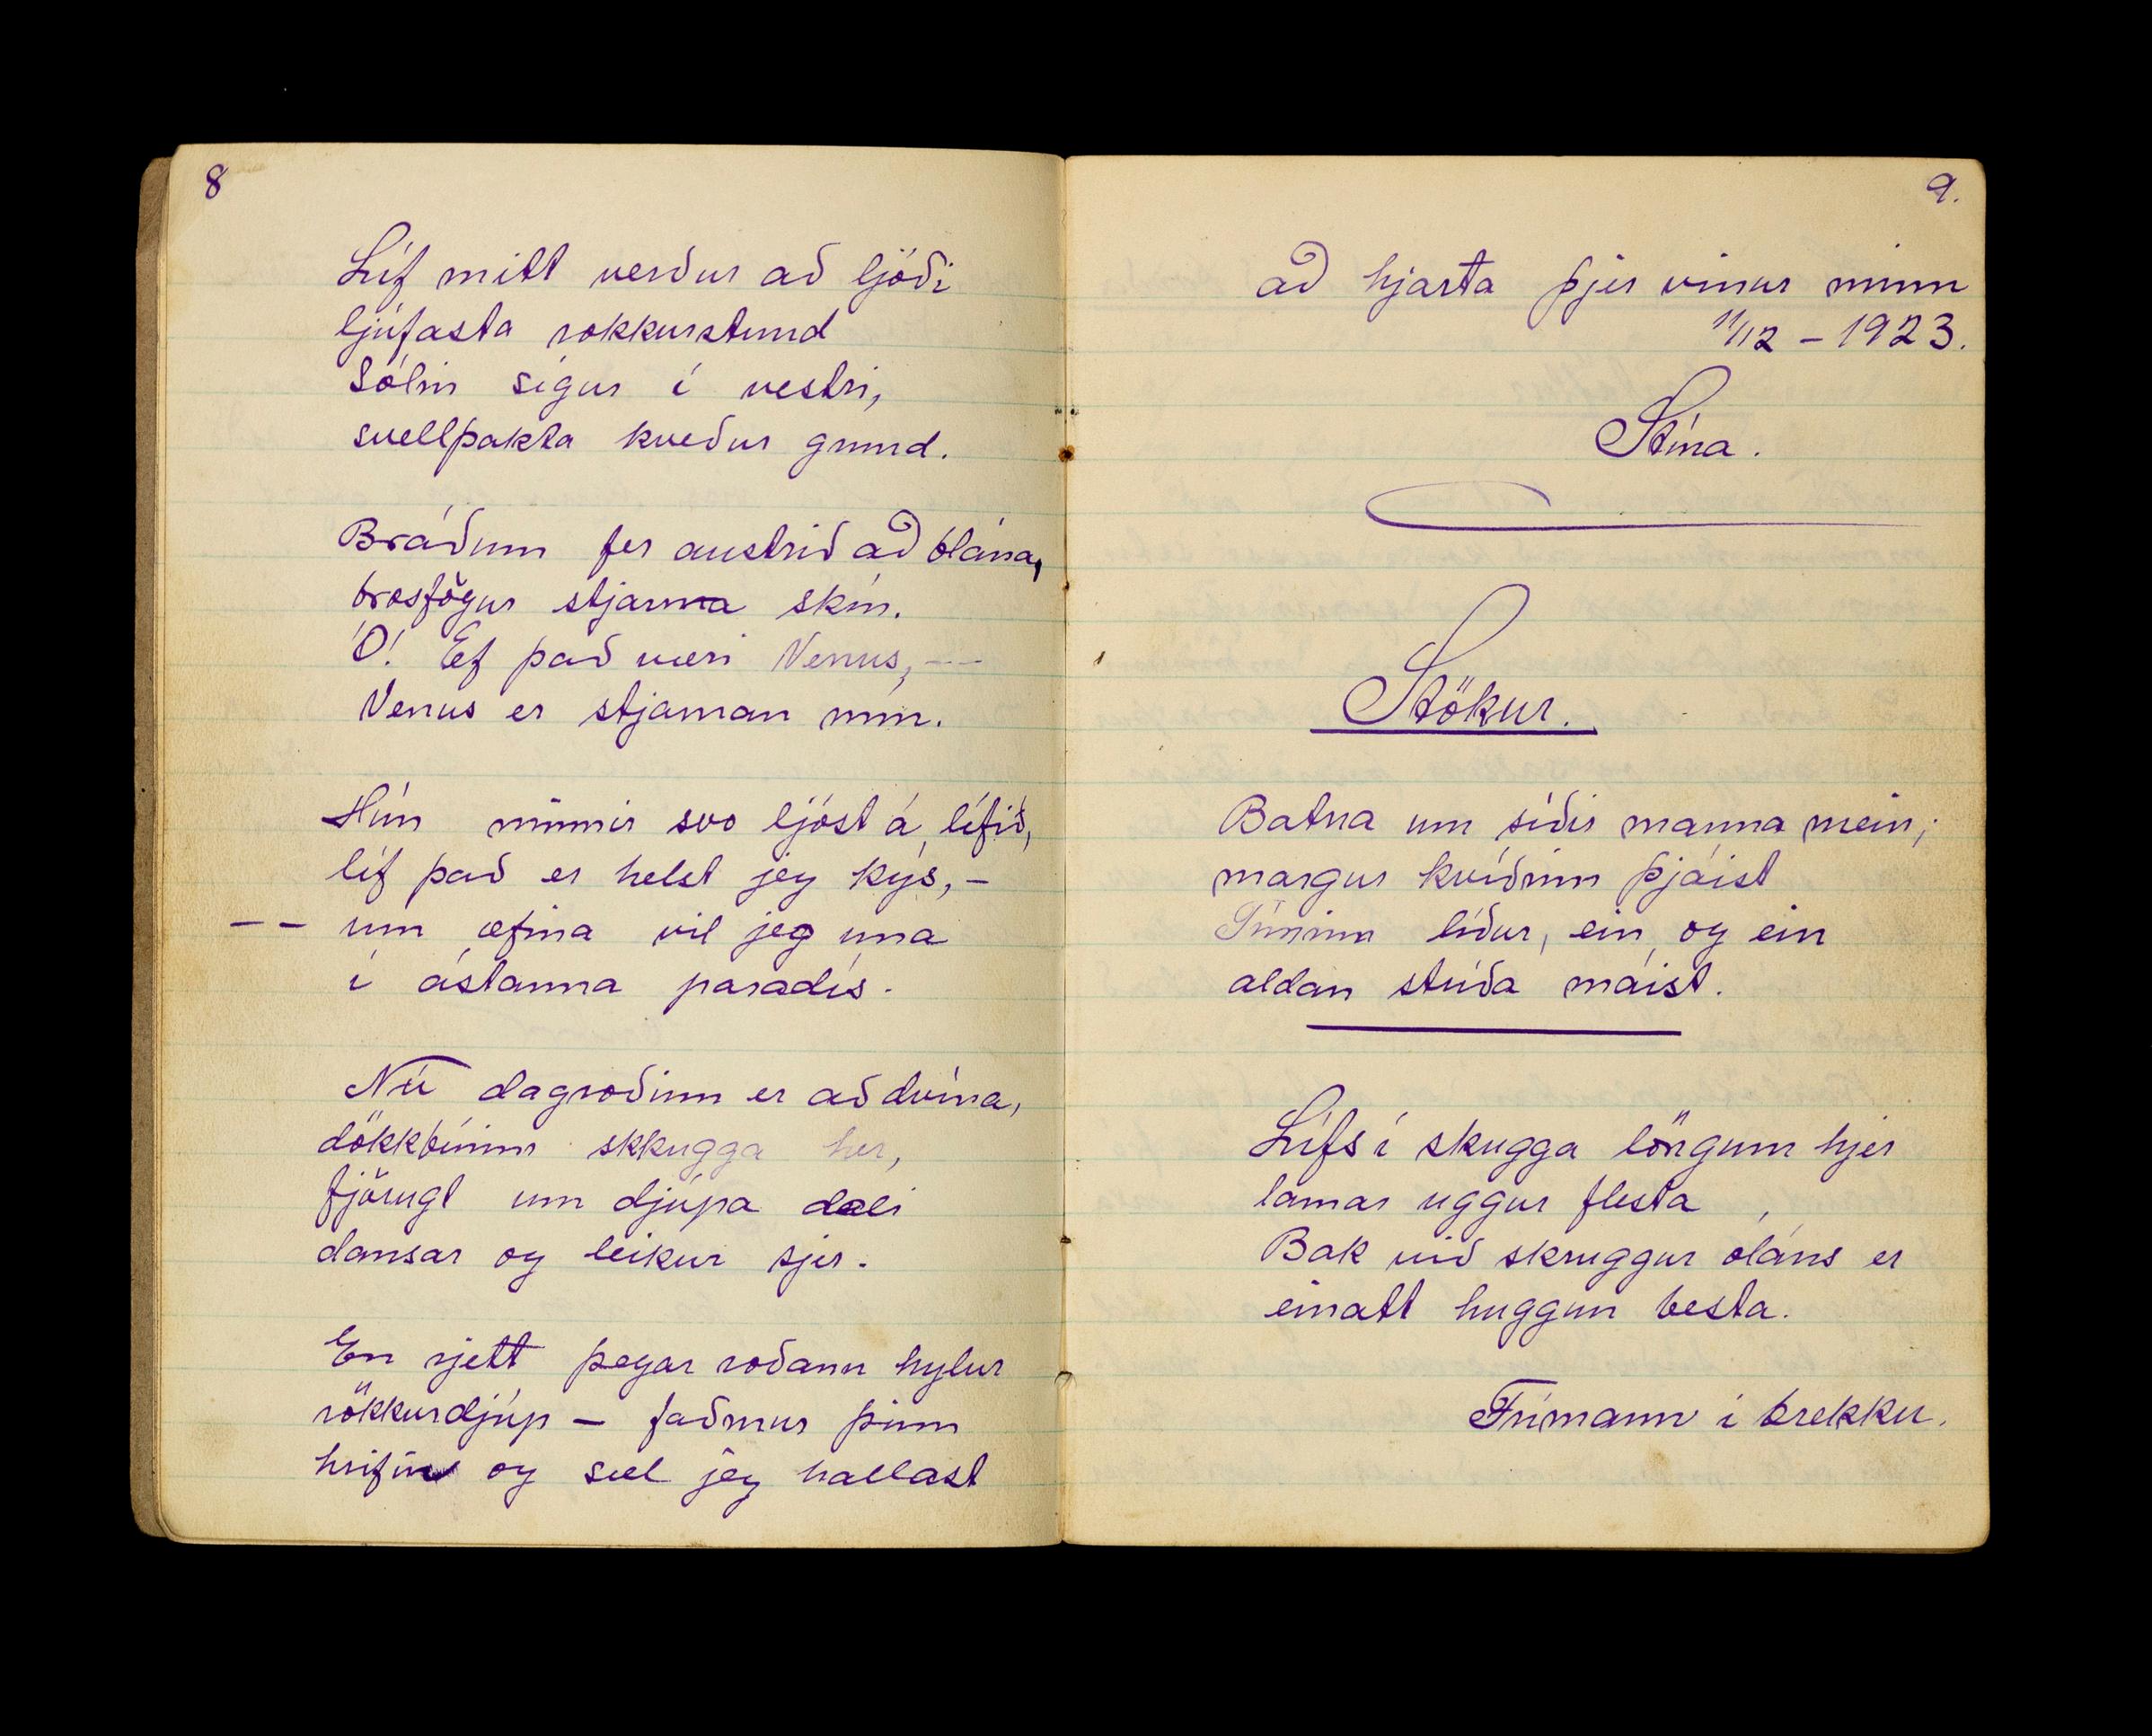 8
Líf mitt verður að ljóði
ljúfasta rokkurstund
Sólin sígur í vestri,
svellþakta kveður grund.
Bráðum fer austrið að blána,
brosfögur stjarna skín.
Ó! Ef það væri Venus, --
Venus er stjarnan mín.
Hún minnir svo ljóst á lífið,
líf það er helst jeg kýs, -
-- um æfina vil jeg una
í ástanna paradís.
Nú dagroðinn er að dvína,
dökkbúinn skkugga her,
fjörugt um djúpa dali
dansar og leikur sjer.
En rjett þegar roðann hylur
rökkurdjúp - faðmur þinn
hrifin og sæl jeg hallast
9.
að hjarta þjer vinur minn
11/12 - 1923.
Stína.
Stökur.
Batna um síðir manna mein;
margur kvíðinn þjáist
Tíminn líður, ein og ein
aldan stríða máist.
Lífs í skugga löngum hjer
lamar uggur flesta,
Bak við skruggur óláns er
einatt huggun besta.
Frímann í brekku.